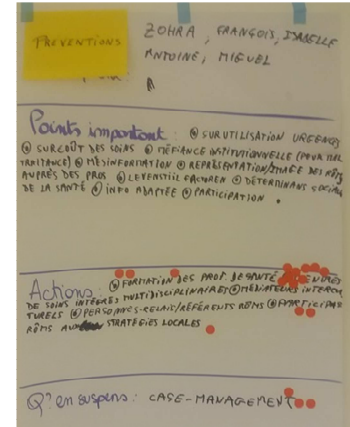 PREVENTIONS
ZOHRA, FRANÇOIS, ISABELLE
ANTOINE, MIGUEL
Points important : SURUTILISATION URGENCES
SURCOÛT DES SOINS MÉFIANCE INSTITUTIONNELLE
TRAITANCE) MÉSINFORMATION REPRÉSENTATION/IMAGE DES RÔMS
AUPRÈS DES PROS LEVENSTIJL FACTOREN DÉTERMINANS SOCIAUX
DE LA SANTÉ INFO ADAPTÉE PARTICIPATION.
Actions : FORMATION DES PROF. DE SANTÉ
DE SOINS INTÉGRÉS MULTIDISCIPLINAIRES MÉDIATEURS INTERCUL
TURELS PERSONNES-RELAIS/RÉFÉRENTS RÔMS PARTICIPAT
RÔMS AUX STRATÉGIES LOCALES
Q? en suspens : CASE-MANAGEMENT